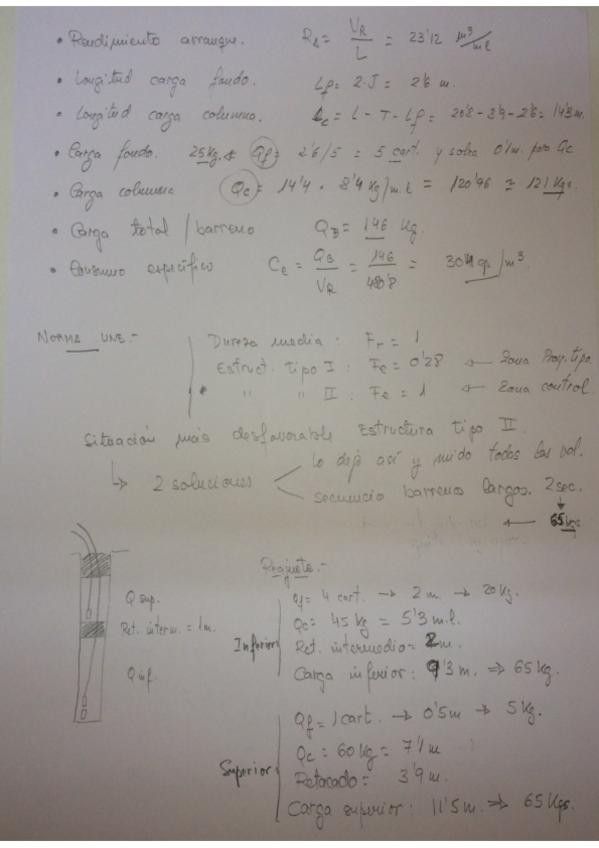 • Rendimiento arranque. Rₐ = V_R / L = 23'12 m³/ml
• Longitud carga fondo. Lf = 2·J = 2'6 m.
• Longitud carga columna. Lc = L - T - Lf = 20'8 - 3'9 - 2'6 = 14'3 m.
• Carga fondo. 25 Kg. Qf = 2'6/5 = 5 cart. y sobra 0'1 m. para Qc
• Carga columna Qc = 14'4 · 8'4 Kg/m.l = 120'96 ≃ 121 Kgs.
• Carga total / barreno Q_B = 146 Kg.
• Consumo específico Ce = Q_B / V_R = 146 / 480'8 = 304 gr/m³.
NORMA UNE.-
Dureza media : Fr = 1
Estruct. tipo I : Fe = 0'28 ← Zona Proy. tipo.
• " " II : Fe = 1 ← Zona control.
Situación más desfavorable Estructura tipo II.
↳ 2 soluciones
lo dejo así y mido todas las vol.
secuencio barrenos largos. 2 sec.
↓
← 65 kgs
Reajuste.-
Q sup.
Ret. interm. = 1m.
Q inf.
Inferior
Qf = 4 cart. → 2 m. → 20 Kg.
Qc = 45 kg = 5'3 m.l.
Ret. intermedio = 2 m.
Carga inferior : 9'3 m. ⇒ 65 Kg.
Superior
Qf = 1 cart. → 0'5 m → 5 Kg.
Qc = 60 kg = 7'1 m
Retacado = 3'9 m.
Carga superior : 11'5 m. ⇒ 65 Kgs.